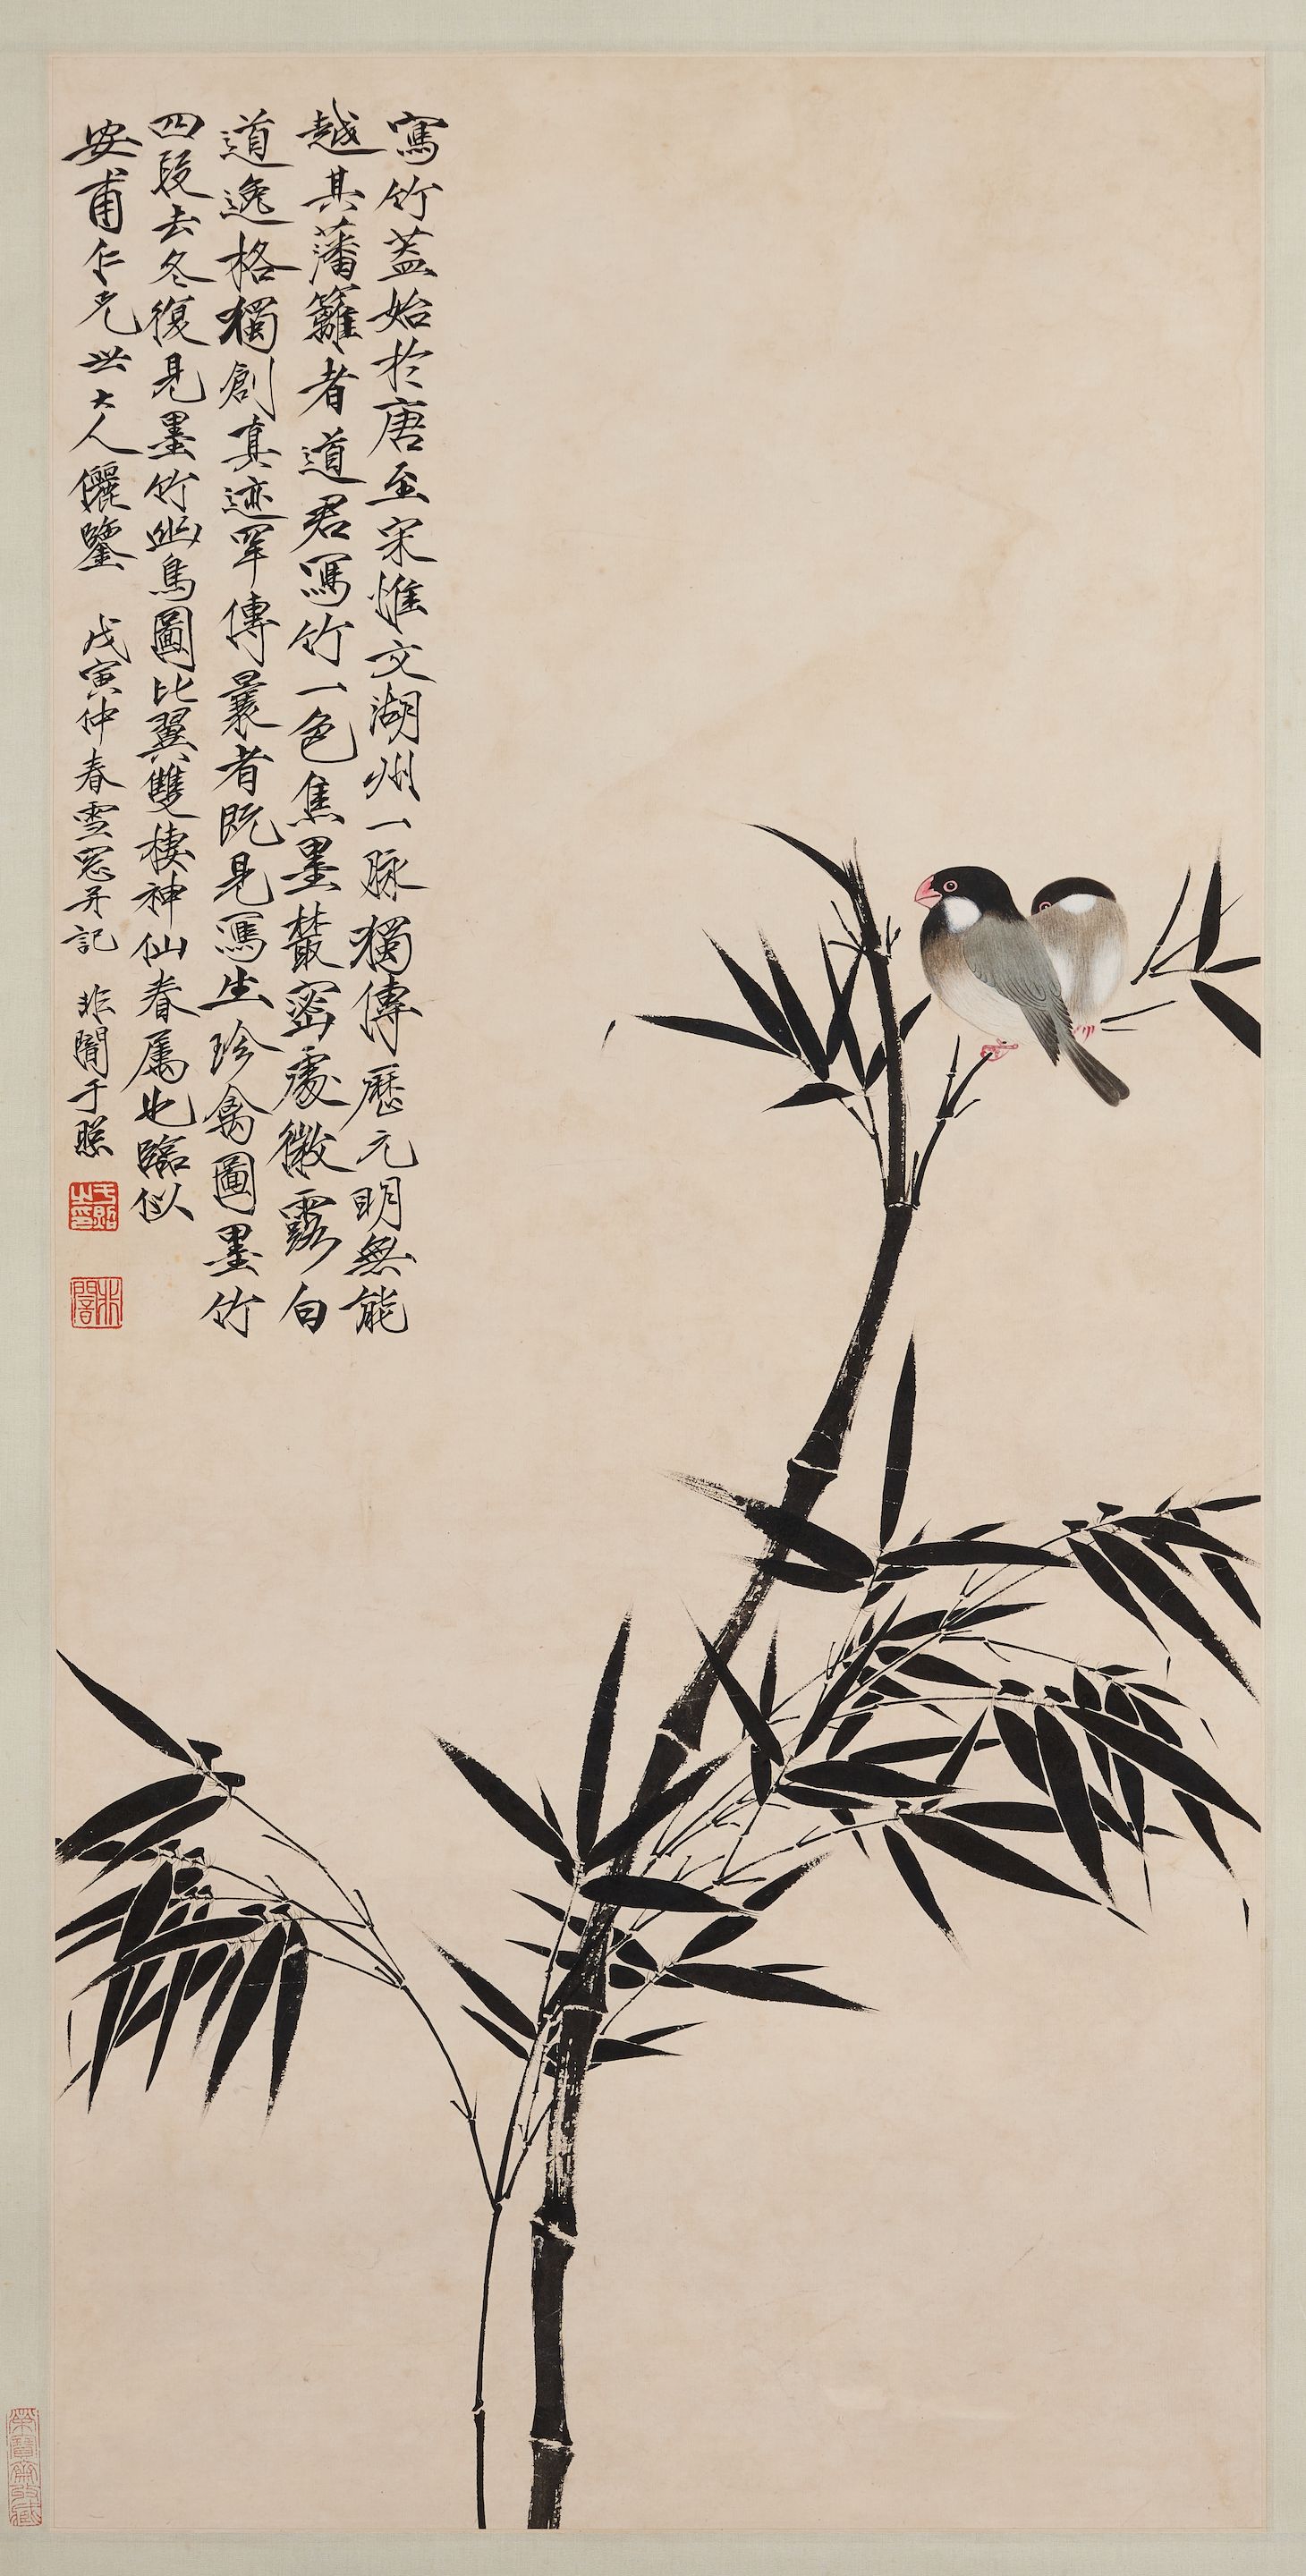 寫竹蓋始於唐至宋惟文湖州一脉獨傳歷元明無能
越其藩籬者道君寫竹一色焦墨叢密處微露白
道逸格獨創真迹罕傳曩者既見寫生珍禽圖墨竹
四段去冬復見墨竹幽鳥圖比翼雙棲神仙眷属也臨似
安甫仁兄世大人儷鑒 戊寅仲春雪窓并記 非闇于照
于照之印
非闇
榮寶齋收藏